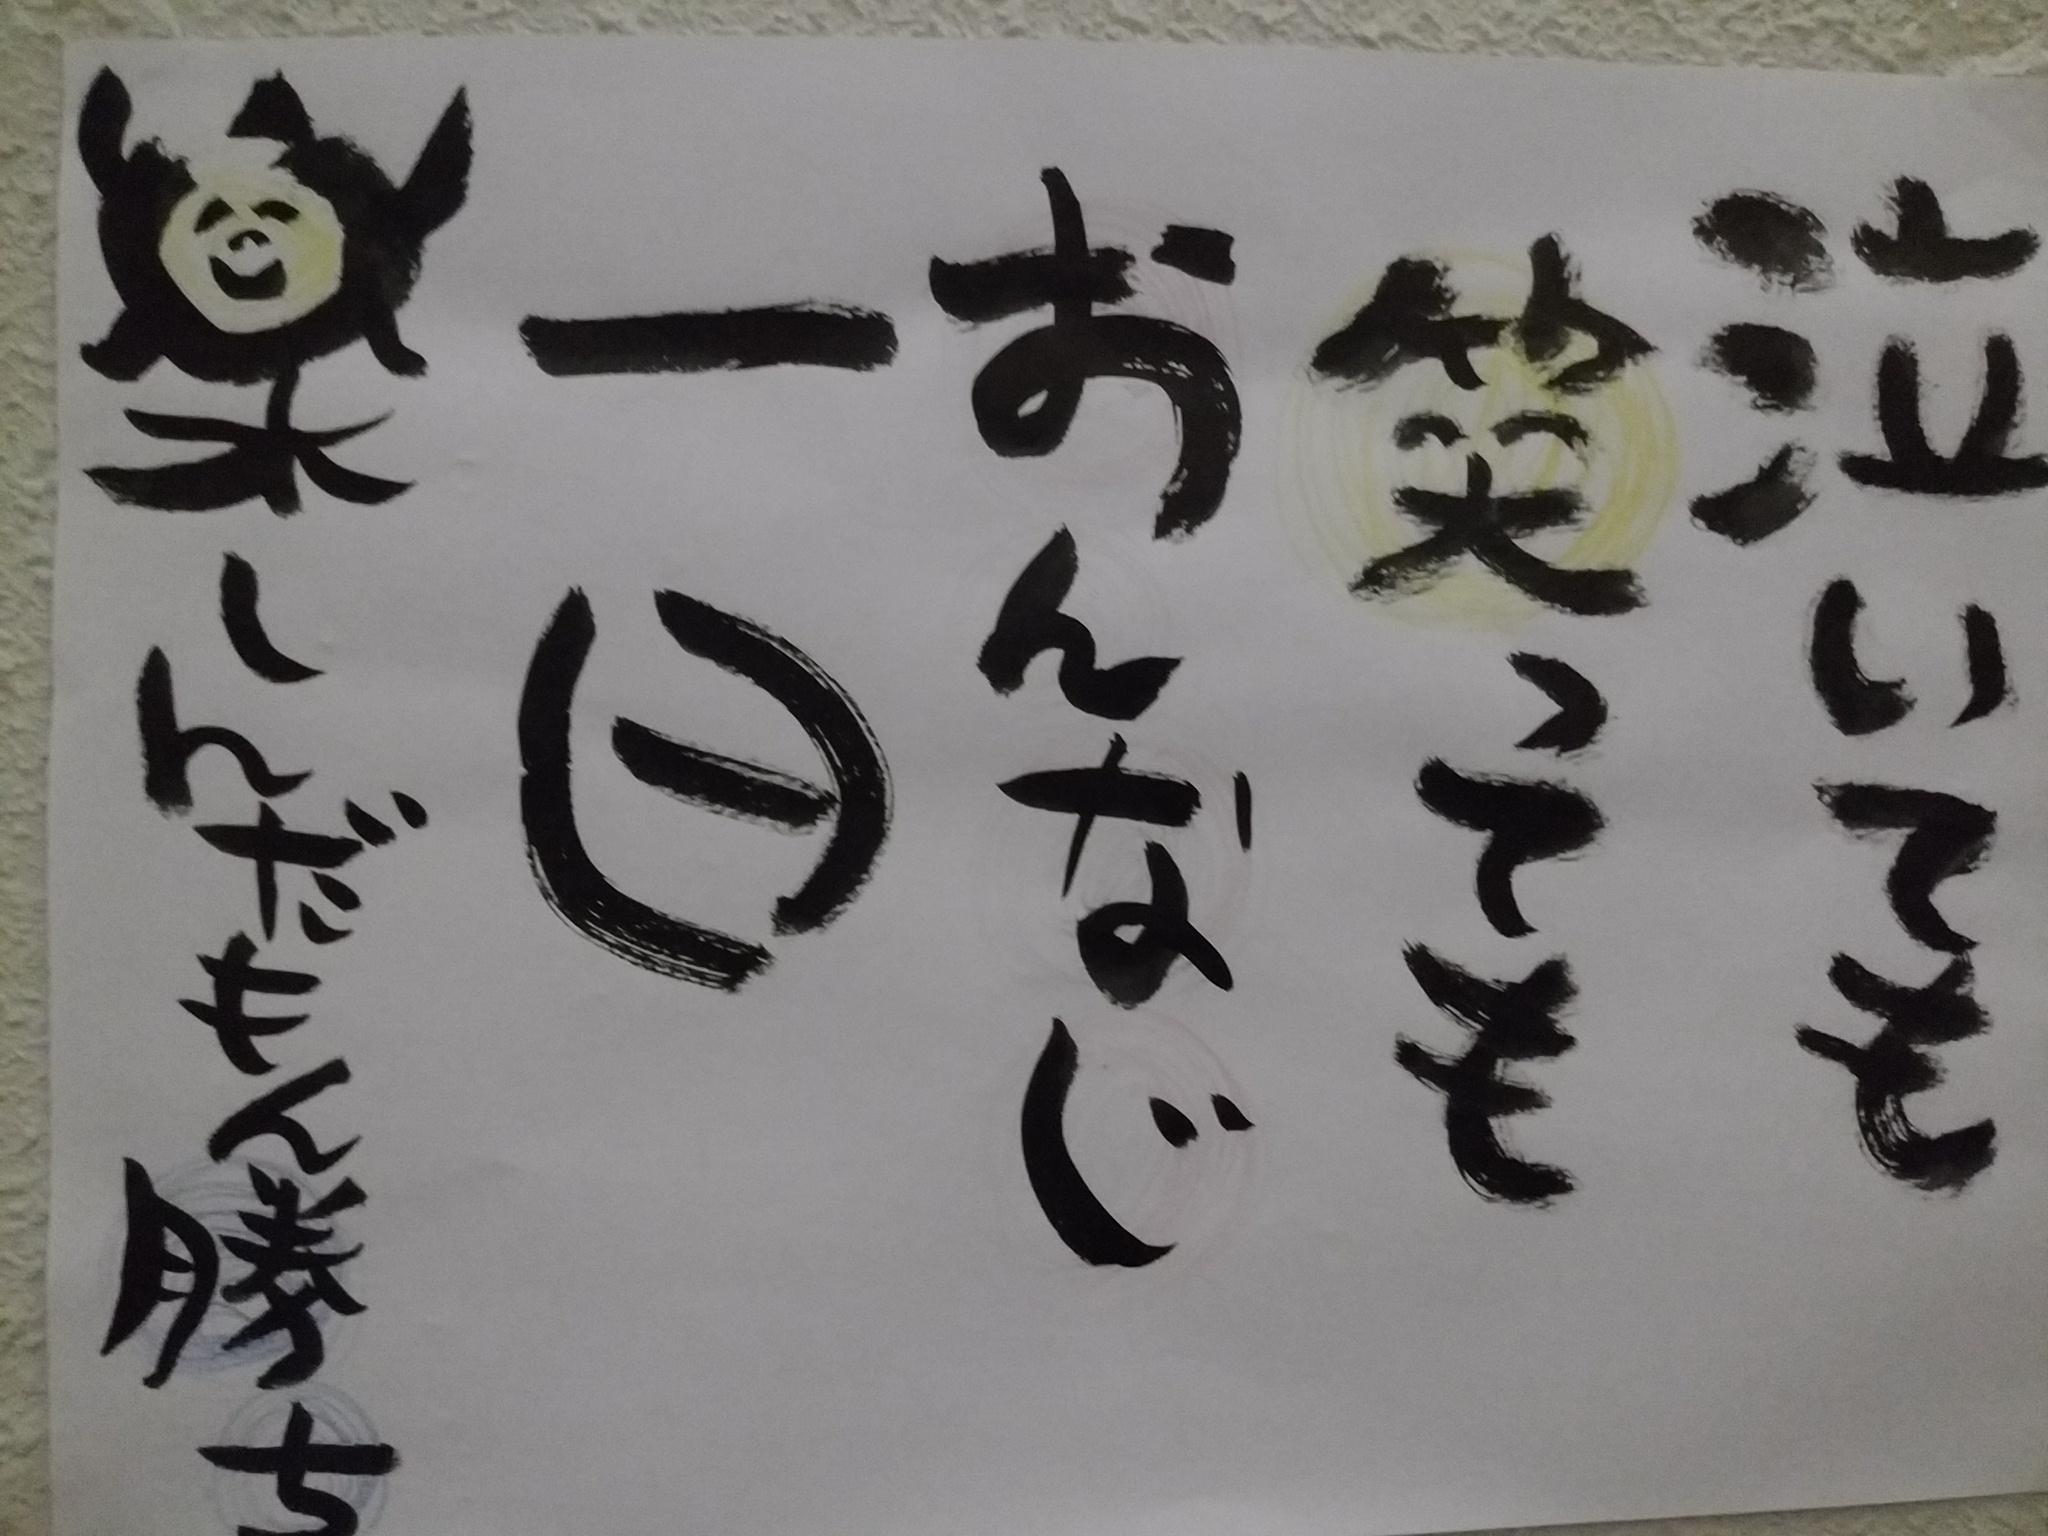 泣いても
笑っても
おんなじ
一日
楽しんだもん勝ち